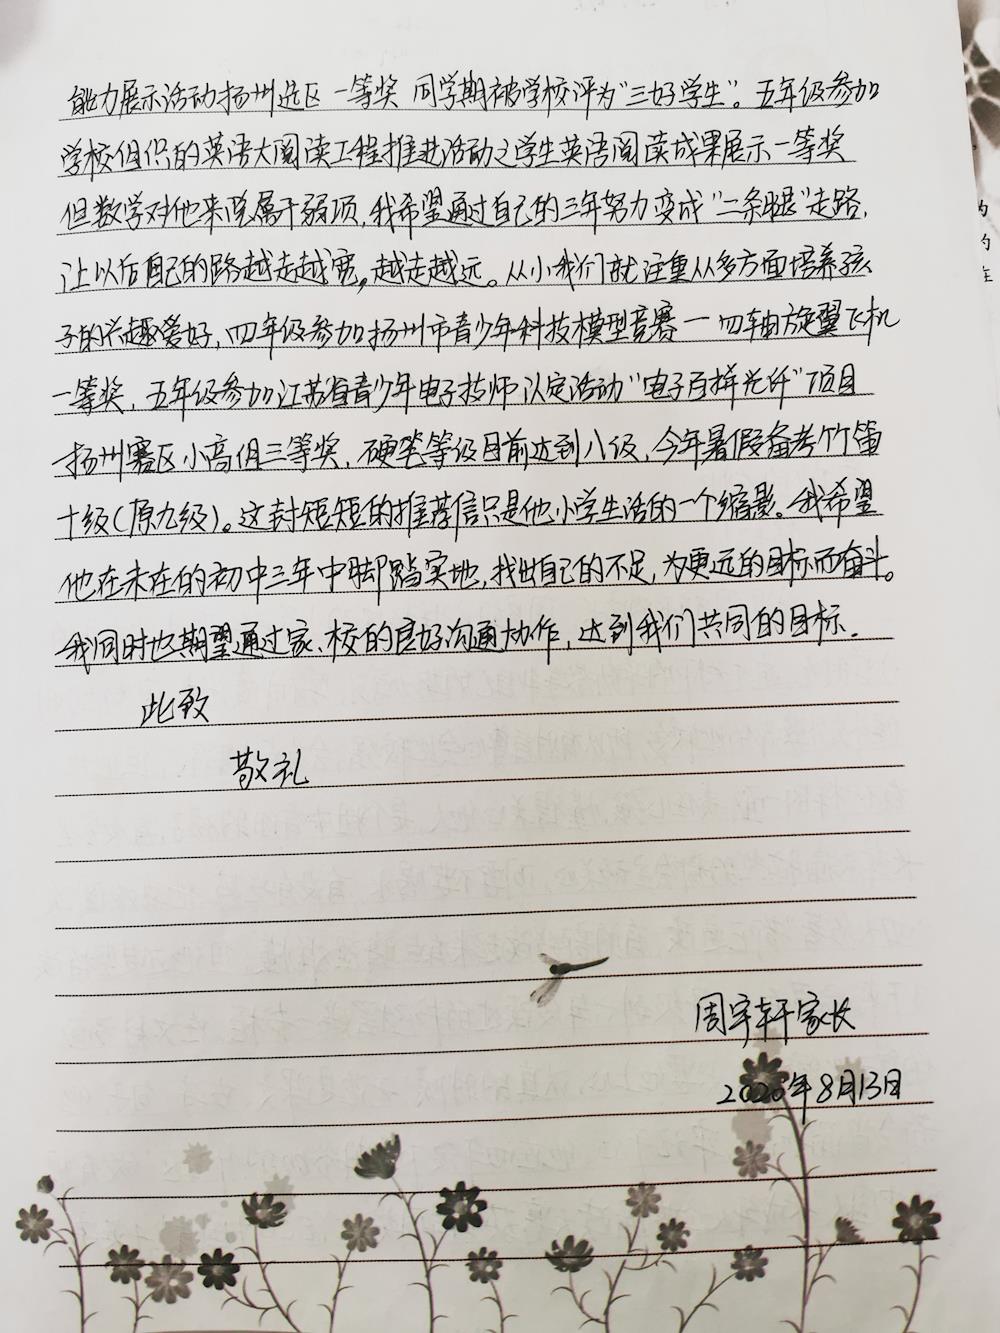 能力展示活动扬州选区一等奖 同学期被学校评为“三好学生”。五年级参加
学校组织的英语大阅读工程推进活动之学生英语阅读成果展示一等奖
但数学对他来说属于弱项，我希望通过自己的三年努力变成“二条腿”走路，
让以后自己的路越走越宽，越走越远。从小我们就注重从多方面培养孩
子的兴趣爱好，四年级参加扬州市青少年科技模型竞赛一四轴旋翼飞机
一等奖，五年级参加江苏省青少年电子技师认定活动“电子百拼光纤”项目
扬州赛区小高组三等奖，硬笔等级目前达到八级，今年暑假备考竹笛
十级（原九级）。这封短短的推荐信只是他小学生活的一个缩影。我希望
他在未在的初中三年中脚踏实地，找出自己的不足，为更远的目标而奋斗。
我同时也期望通过家、校的良好沟通协作，达到我们共同的目标.
此致
敬礼
周宇轩家长
2020年8月13日
为
的
在